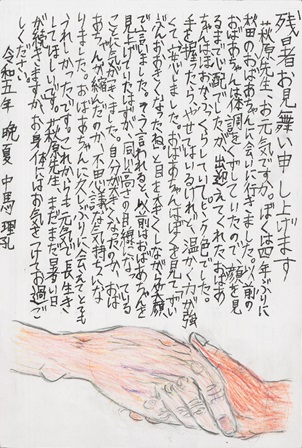 残暑お見舞い申し上げます
萩原先生、お元気ですか。ぼくは四年ぶりに
秋田のおばあちゃんに会いに行きました。父前の
おばあちゃん体調をくずしていたので、顔を見
るまで心配でしたが、出迎えてくれたおばあ
ちゃんはほおがふっくらしていて、ピンク色でした。
手を握ったら、やせてはいるけれど、温かく力が強
くて、安心しました。おばあちゃんはぼくを見て「ずい
ぶんおおきくなったね。」と目を大きくしながら笑顔
で言いました。そう言われると、以前はおばあちゃんを
見上げていたはずが、同じ高さの目線になっている
ことに気がきました。自分が大きくなったのか、おば
あちゃんが縮んだのか、不思議な気持ちにな
りました。おばあちゃんに久しぶりに会えてとても
うれしかったです。これからも元気で長生き
してほしいです。萩原先生、まだまだ暑い日
が続きますが、お身体にはお気をつけてお過ご
しください。
令和五年 晩夏 中馬 理孔